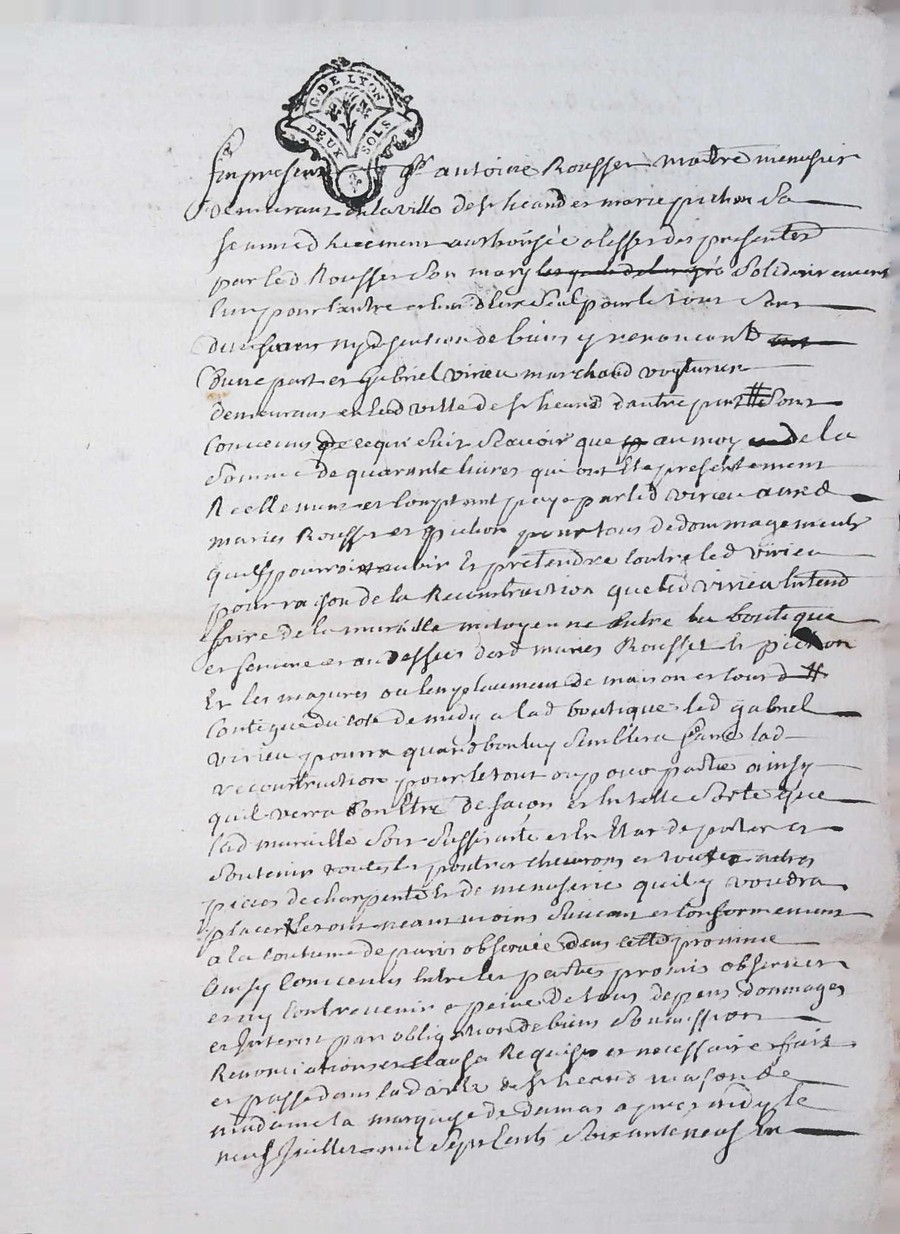 G. DE LYON
DEUX SOLS
furent presents Sr antoine Rousset maitre menusier
demeurant en la ville de st heand et marie pichon sa
femme d'hu[m]ent authorisée a l'effet des presentes
par led Rousset son mary solidairement
l'un pour l'autre et l'un d'eux seul pour le tout sans
division ny discution de biens y renoncant
d'une part et Gabriel virieu marchand voyturier
demeurant en lad ville de st heand d'autre part # sont
convenus de ce qui suit scavoir que au moyen de la
somme de quarante livres qui ont Eté presentement
Reellement et comptant payé par led virieu auxd
maries Rousset et pichon pour tous dedommagements
quils pourroient avoir Et pretendre contre led virieu
pour raison de la Reconstruction que led virieu Entend
faire de la muraille mitoyenne Entre la boutique
et feniere et au dessus desd maries Rousset et pichon
Et les mazures ou Emplacement de maison et cour d #
contigue du coté de midy a lad boutique led gabriel
virieu pourra quand bon luy semblera faire lad
reconstruction pour le tout ou pour partie ainsy
quil verra bon Etre de facon et En telle sorte que
lad muraille soit suffisante et En Etat de porter et
soutenir toutes les poutres chevrons et toutes autres
pieces de charpente Et de menuserie quil y voudra
placer le tout neantmoins suivant et conformement
a la coutume de paris observée dans cette province
Ainsy convenus Entre les parties promis observer
et ny contrevenir a peine de tous depens dommages
et Interets par obligation de biens soumission
Renonciations et clauses Requises et necessaires fait
et passé dans lad ville de st heand maison de
madame la marquise de damas apres midy le
neuf Juillet mil sept cents soixante neuf En